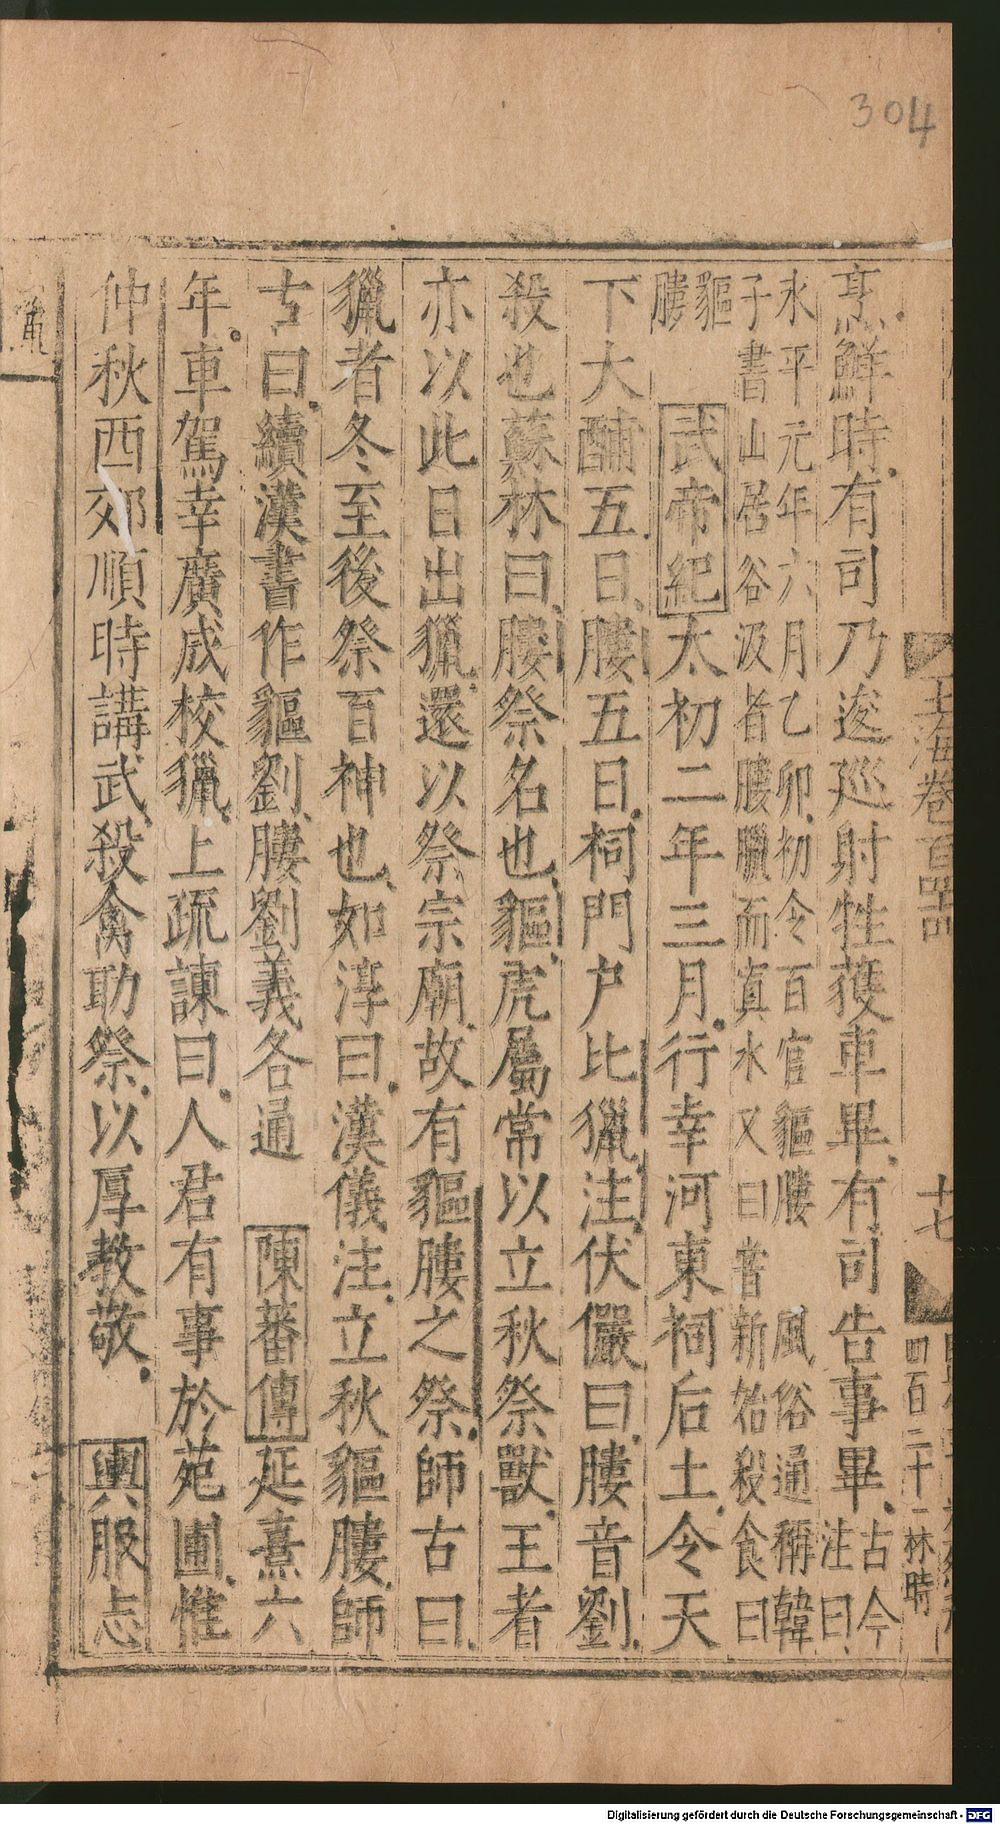 304
玉海卷百四
十七
四百二十一 林時
烹鮮時有司乃逡巡射牲獲車畢有司告事畢古今注曰
永平元年六月乙卯初令百官貙膢 風俗通稱韓
子書山居谷汲者膢臘而寘水又曰嘗新始殺食曰
貙膢 武帝紀太初二年三月行幸河東祠后土令天
下大酺五日膢五日祠門户比獵注伏儼曰膢音劉劉
殺也蘇林曰膢祭名也貙虎屬常以立秋祭獸王者
亦以此日出獵還以祭宗廟故有貙膢之祭師古曰
獵者冬至後祭百神也如淳曰漢儀注立秋貙膢師
古曰續漢書作貙劉膢劉義各通 陳蕃傳延熹六
年車駕幸廣成校獵上疏諫曰人君有事於苑囿惟
仲秋西郊順時講武殺禽助祭以厚教敬 輿服志
Digitalisierung gefördert durch die Deutsche Forschungsgemeinschaft - DFG